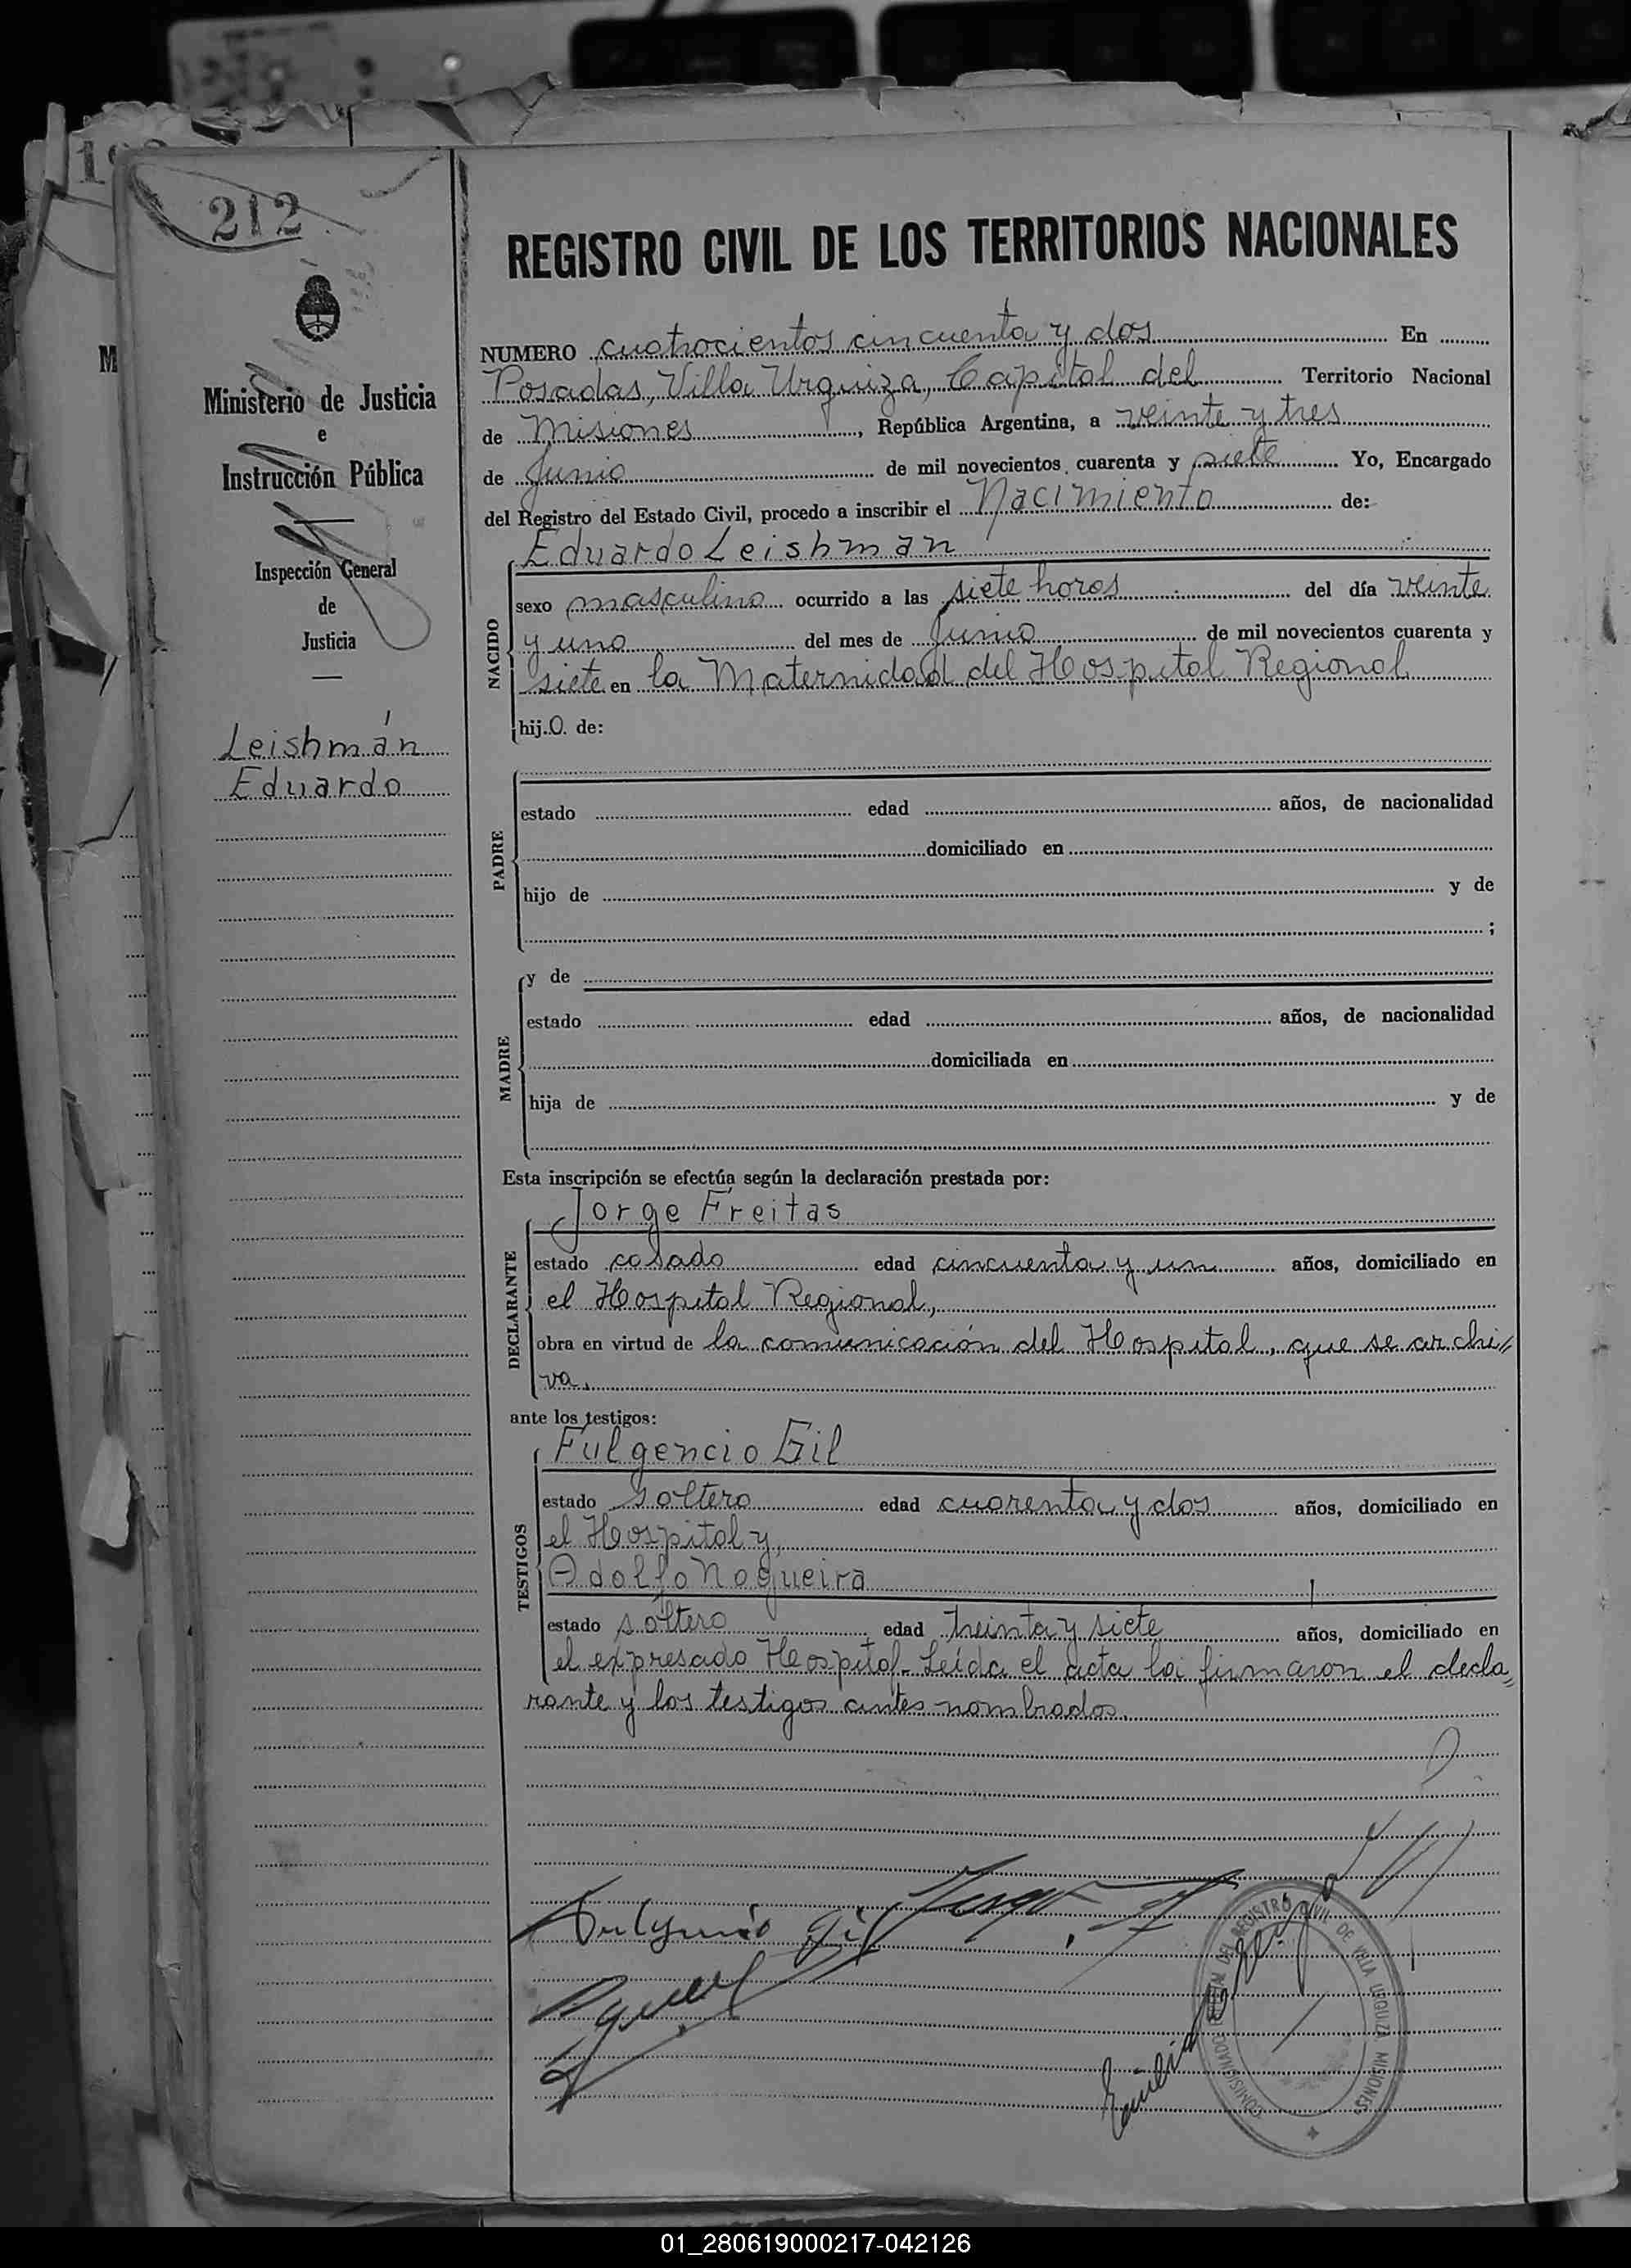 212
Ministerio de Justicia
e
Instrucción Pública
Inspección General
de
Justicia
Leishmán
Eduardo
REGISTRO CIVIL DE LOS TERRITORIOS NACIONALES
NUMERO cuatrocientos cincuenta y dos En
Posadas, Villa Urquiza, Capital del Territorio Nacional
de Misiones, República Argentina, a veinte y tres
de Junio de mil novecientos cuarenta y siete Yo, Encargado
del Registro del Estado Civil, procedo a inscribir el Nacimiento de:
Eduardo Leishman
NACIDO
sexo masculino ocurrido a las siete horas del día veinte
y uno del mes de Junio de mil novecientos cuarenta y
siete en la Maternidad del Hospital Regional
hij.o. de:
PADRE
estado edad años, de nacionalidad
domiciliado en
hijo de y de
;
MADRE
y de
estado edad años, de nacionalidad
domiciliada en
hija de y de
Esta inscripción se efectúa según la declaración prestada por:
Jorge Freitas
DECLARANTE
estado casado edad cincuenta y un años, domiciliado en
el Hospital Regional,
obra en virtud de la comunicación del Hospital, que se archi//
va.
ante los testigos:
Fulgencio Gil
TESTIGOS
estado soltero edad cuarenta y dos años, domiciliado en
el Hospital y,
Adolfo Nogueira
estado soltero edad treinta y siete años, domiciliado en
el expresado Hospital. Leída el acta la firmaron el decla//
rante y los testigos antes nombrados.
Fulgencio Gil
DEL REGISTRO CIVIL DE VILLA URQUIZA MISIONES
01_280619000217-042126